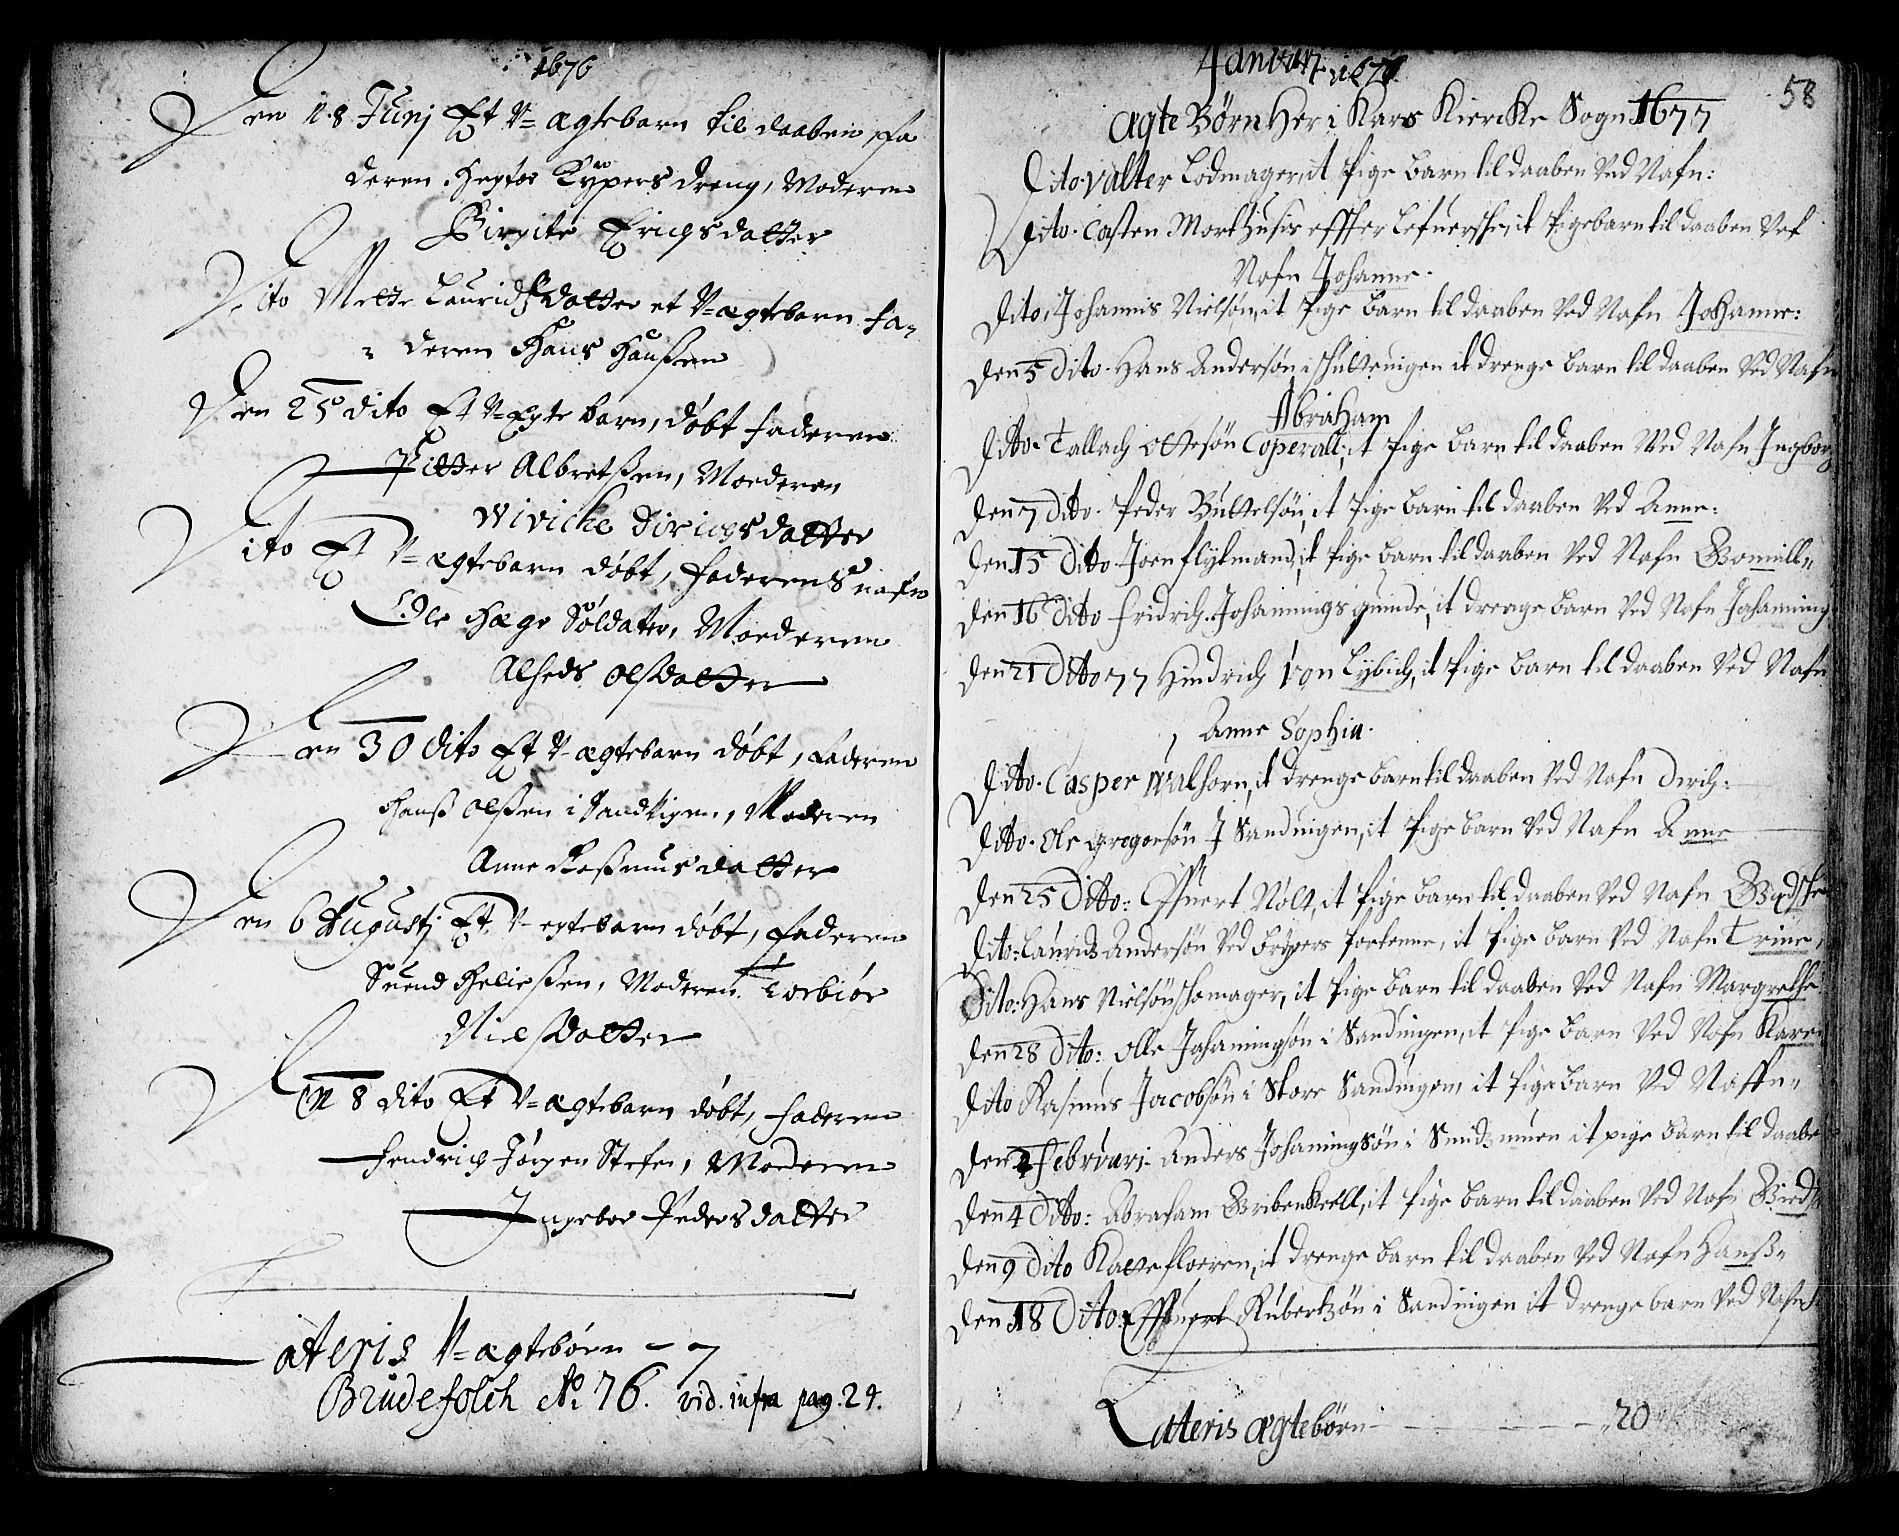 1676
Den 18 Junj Et V=ægtebarn til daaben, fa
deren. Kypers dreng, Moderen
Birgite Erichsdatter
Dito Mette Lauridsdatter et V=ægtebarn fa=
deren Hans Hanßen
Den 25 dito Et V=Egte barn, døbt faderen
Pitter Albretßen, Moederen
Wiviche Dirichsdatter
Dito Et V=ægtebarn døbt, faderens nafn
Ole Hage Soldater, Moederen
Alheds Olsdatter
Den 30 dito Et V=ægtebarn døbt, faderen
Hanß Olßen i Sandvigen, Moderen
Anne Raßmusdatter
Den 6 Augustj Et V=egtebarn døbt, faderen
Suend Moderen Torbiør
Nielsdatter
En 8 dito Et V=ægtebarn døbt, faderen
Hendrich Jørgen Stefen, Moederen
Ingebor Pedersdatter
Lateris V=ægtebørn - 7
Brudefolch No. 76. vid. infra pag. 24.
Januarij 1677
58
Ægte Børn Her i Kars Kiercke Sogn 1677
Dito. Valter Lodmager, it Pige barn til daaben Ved Nafn:
Dito. Casten it Pigebarn til daaben Ved
Nafn Johanne.
Dito, Johannis Nielsøn, it Pige barn til daaben Ved Nafn Johanne:
Den 5 Dito. Hans Andersøn i it drenge barn til daaben Ved Nafn
Abraham
Ditto. Tallach Ottesøn Coperall, it Pige barn til daaben Ved Nafn Ingborg
Den 7 Dito. Peder Buttelsøn, it Pige barn til daaben Ved Anne:
Den 15 Ditto Joen flytmand, it Pige barn til daaben Ved Nafn Gomill,,
Den 16 Dito Fridrich Johannings quinde, it drenge barn Ved Nafn Johanning.
Den 21 Ditto 77 Hindrich Von Lybich, it Pige barn til daaben Ved Nafn
Anne Sophia.
Ditto. Casper Walhorn, it drenge barn til daaben Ved Nafn Dirch:
Ditto. Ole Gregersøn I Sandvigen, it Pige barn Ved Nafn Anne
Den 25 Ditto: Effuert Nolt, it Pige barn til daaben Ved Nafn
Dito: Laurids Andersøn Ved it Pige barn Ved Nafn Trine,
Dito: Hans Nielsøn Shomager, it Pige barn til daaben Ved Nafn Margrethe
Den 28 Dito: Olle Johanningsøn i Sandvigen, it Pige barn Ved Nafn Karen
Dito Rasmus Jacobsøn i Store Sandvigen, it Pige barn Ved Naffn,,
Den 2 Februarj. Anders Johanningsøn i it pige barn til daabe
Den 4 Ditto: Abraham it Pige barn til daaben Ved Nafn
Den 9 Dito it drenge barn til daaben Ved Nafn Hanß,,
Den 18 Dito: Effuert Rubertzøn i Sandvigen it drenge barn Ved Nafn
Lateris ægtebørn - - - - 20